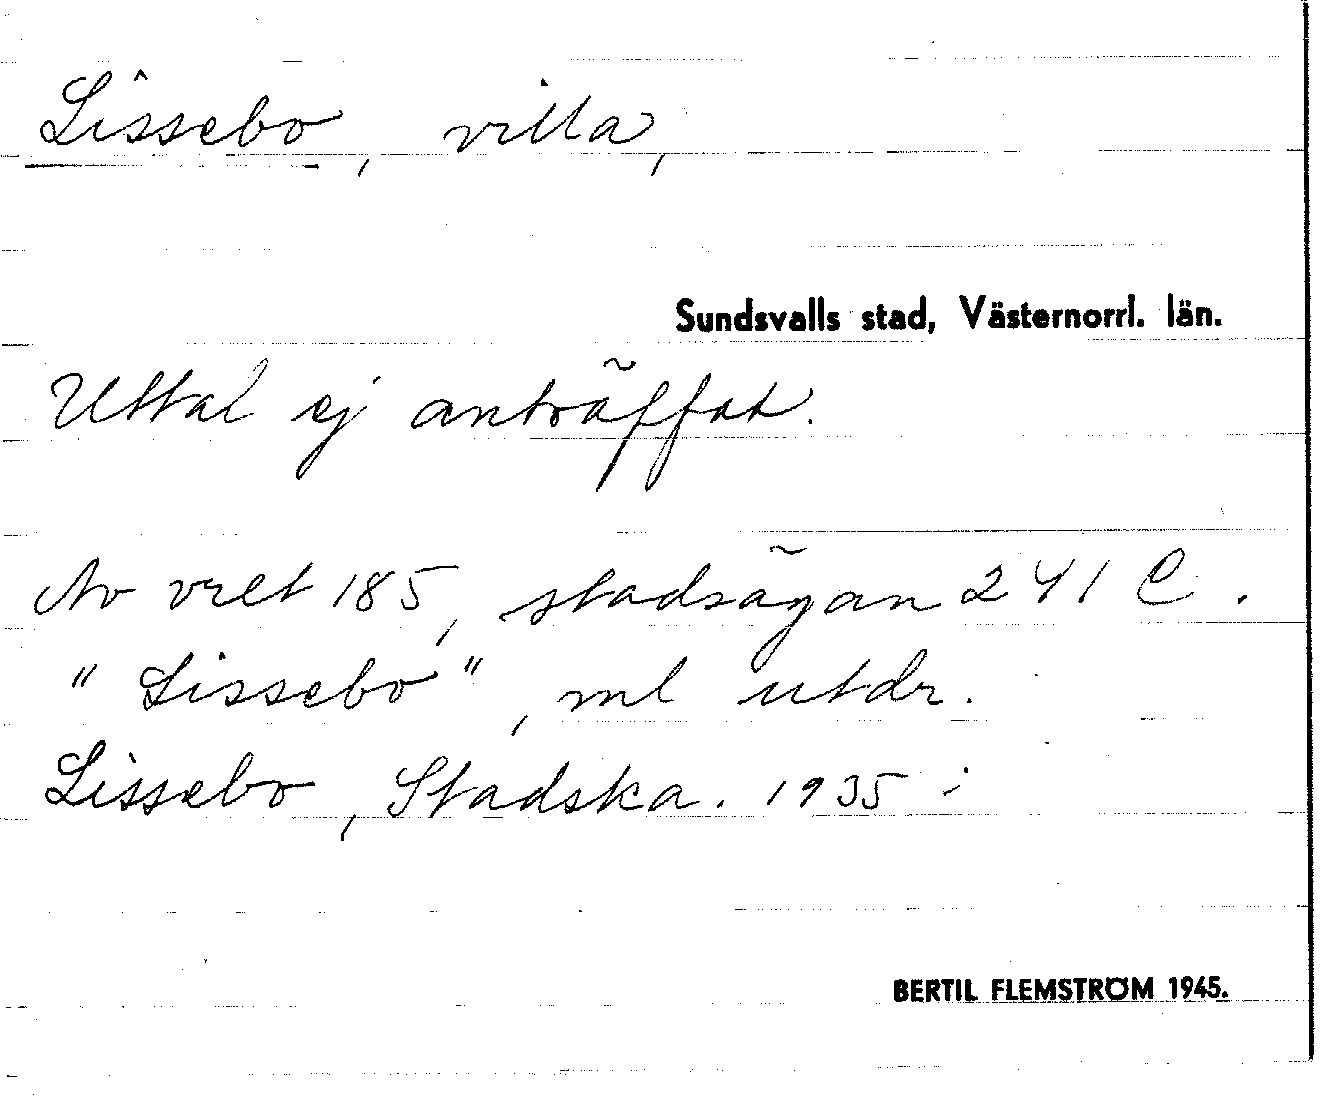 Lissebo, villa,
Sundsvalls stad, Västernorrl. län.
Uttal ej anträffat.
Av vret 185, stadsägan 241 C.
"Lissebo", ml utdr.
Lissebo, Stadska. 1935
BERTIL FLEMSTRÖM 1945.